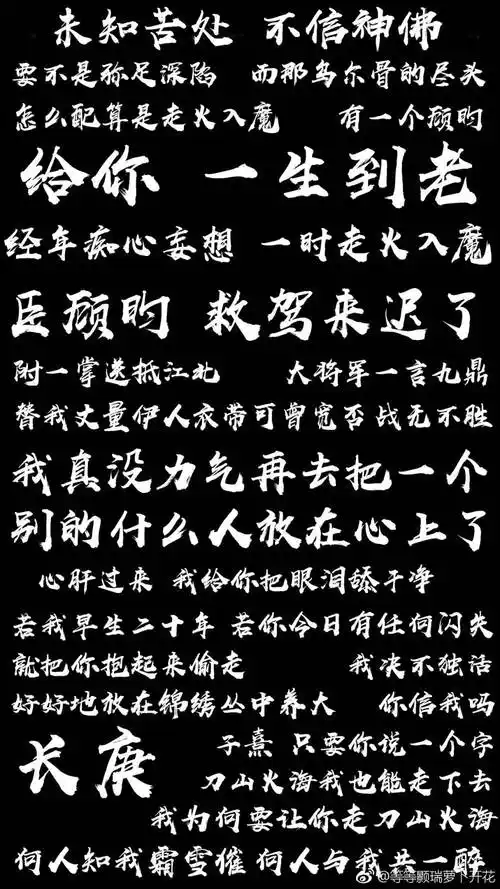 未知苦处 不信神佛
要不是弥足深陷 而那乌尔骨的尽头
怎么配算是走火入魔 有一个顾昀
给你 一生到老
经年痴心妄想 一时走火入魔
臣顾昀 救驾来迟了
附一掌送抵江北 大将军一言九鼎
替我丈量伊人衣带可曾宽否 战无不胜
我真没力气再去把一个
别的什么人放在心上了
心肝过来 我给你把眼泪舔干净
若我早生二十年 若你今日有任何闪失
就把你抱起来偷走 我决不独活
好好地放在锦绣丛中养大 你信我吗
长庚
子熹 只要你说一个字
刀山火海我也能走下去
我为何要让你走刀山火海
何人知我霜雪催 何人与我共一醉
@等等颢瑞萝卜开花